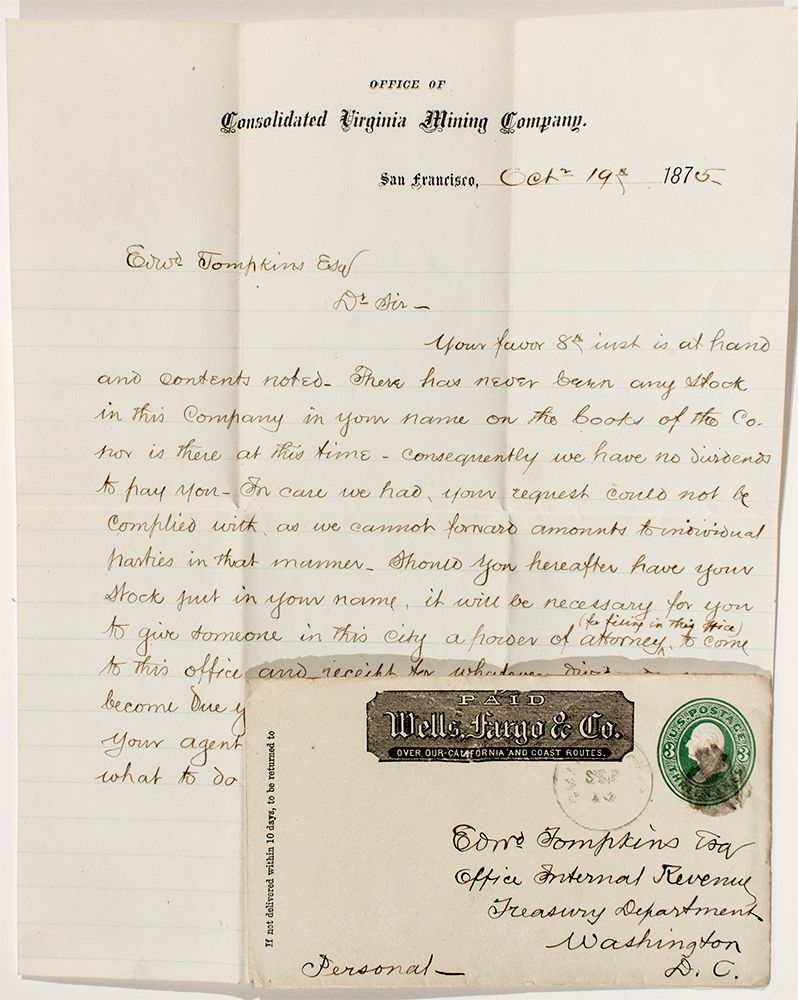 OFFICE OF
Consolidated Virginia Mining Company.
San Francisco, Octr 19th 1875
Edwd Tompkins Esq
Dr Sir –
Your favor 8th inst is at hand
and contents noted – There has never been any stock
in this Company in your name on the books of the Co.
nor is there at this time – consequently we have no dividends
to pay you – In case we had, your request could not be
complied with, as we cannot forward amounts to individual
parties in that manner – Should you hereafter have your
stock put in your name, it will be necessary for you
(for filing in this office)
to give someone in this city a power of attorney, to come
to this office and receipt for whatever
become due
your agent
what to do
PAID
Wells, Fargo & Co.
OVER OUR CALIFORNIA AND COAST ROUTES.
U.S. POSTAGE
THREE CENTS
3 3
SEP
13
If not delivered within 10 days, to be returned to
Edwd Tompkins Esq
Office Internal Revenue
Treasury Department
Washington
D. C.
Personal –